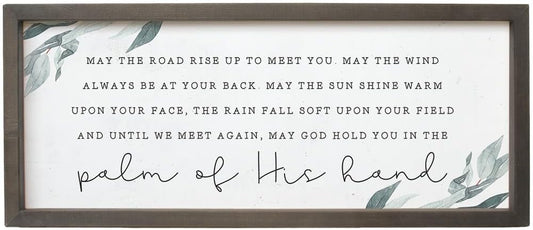 MAY THE ROAD RISE UP TO MEET YOU. MAY THE WIND
ALWAYS BE AT YOUR BACK. MAY THE SUN SHINE WARM
UPON YOUR FACE, THE RAIN FALL SOFT UPON YOUR FIELD
AND UNTIL WE MEET AGAIN, MAY GOD HOLD YOU IN THE
palm of His hand